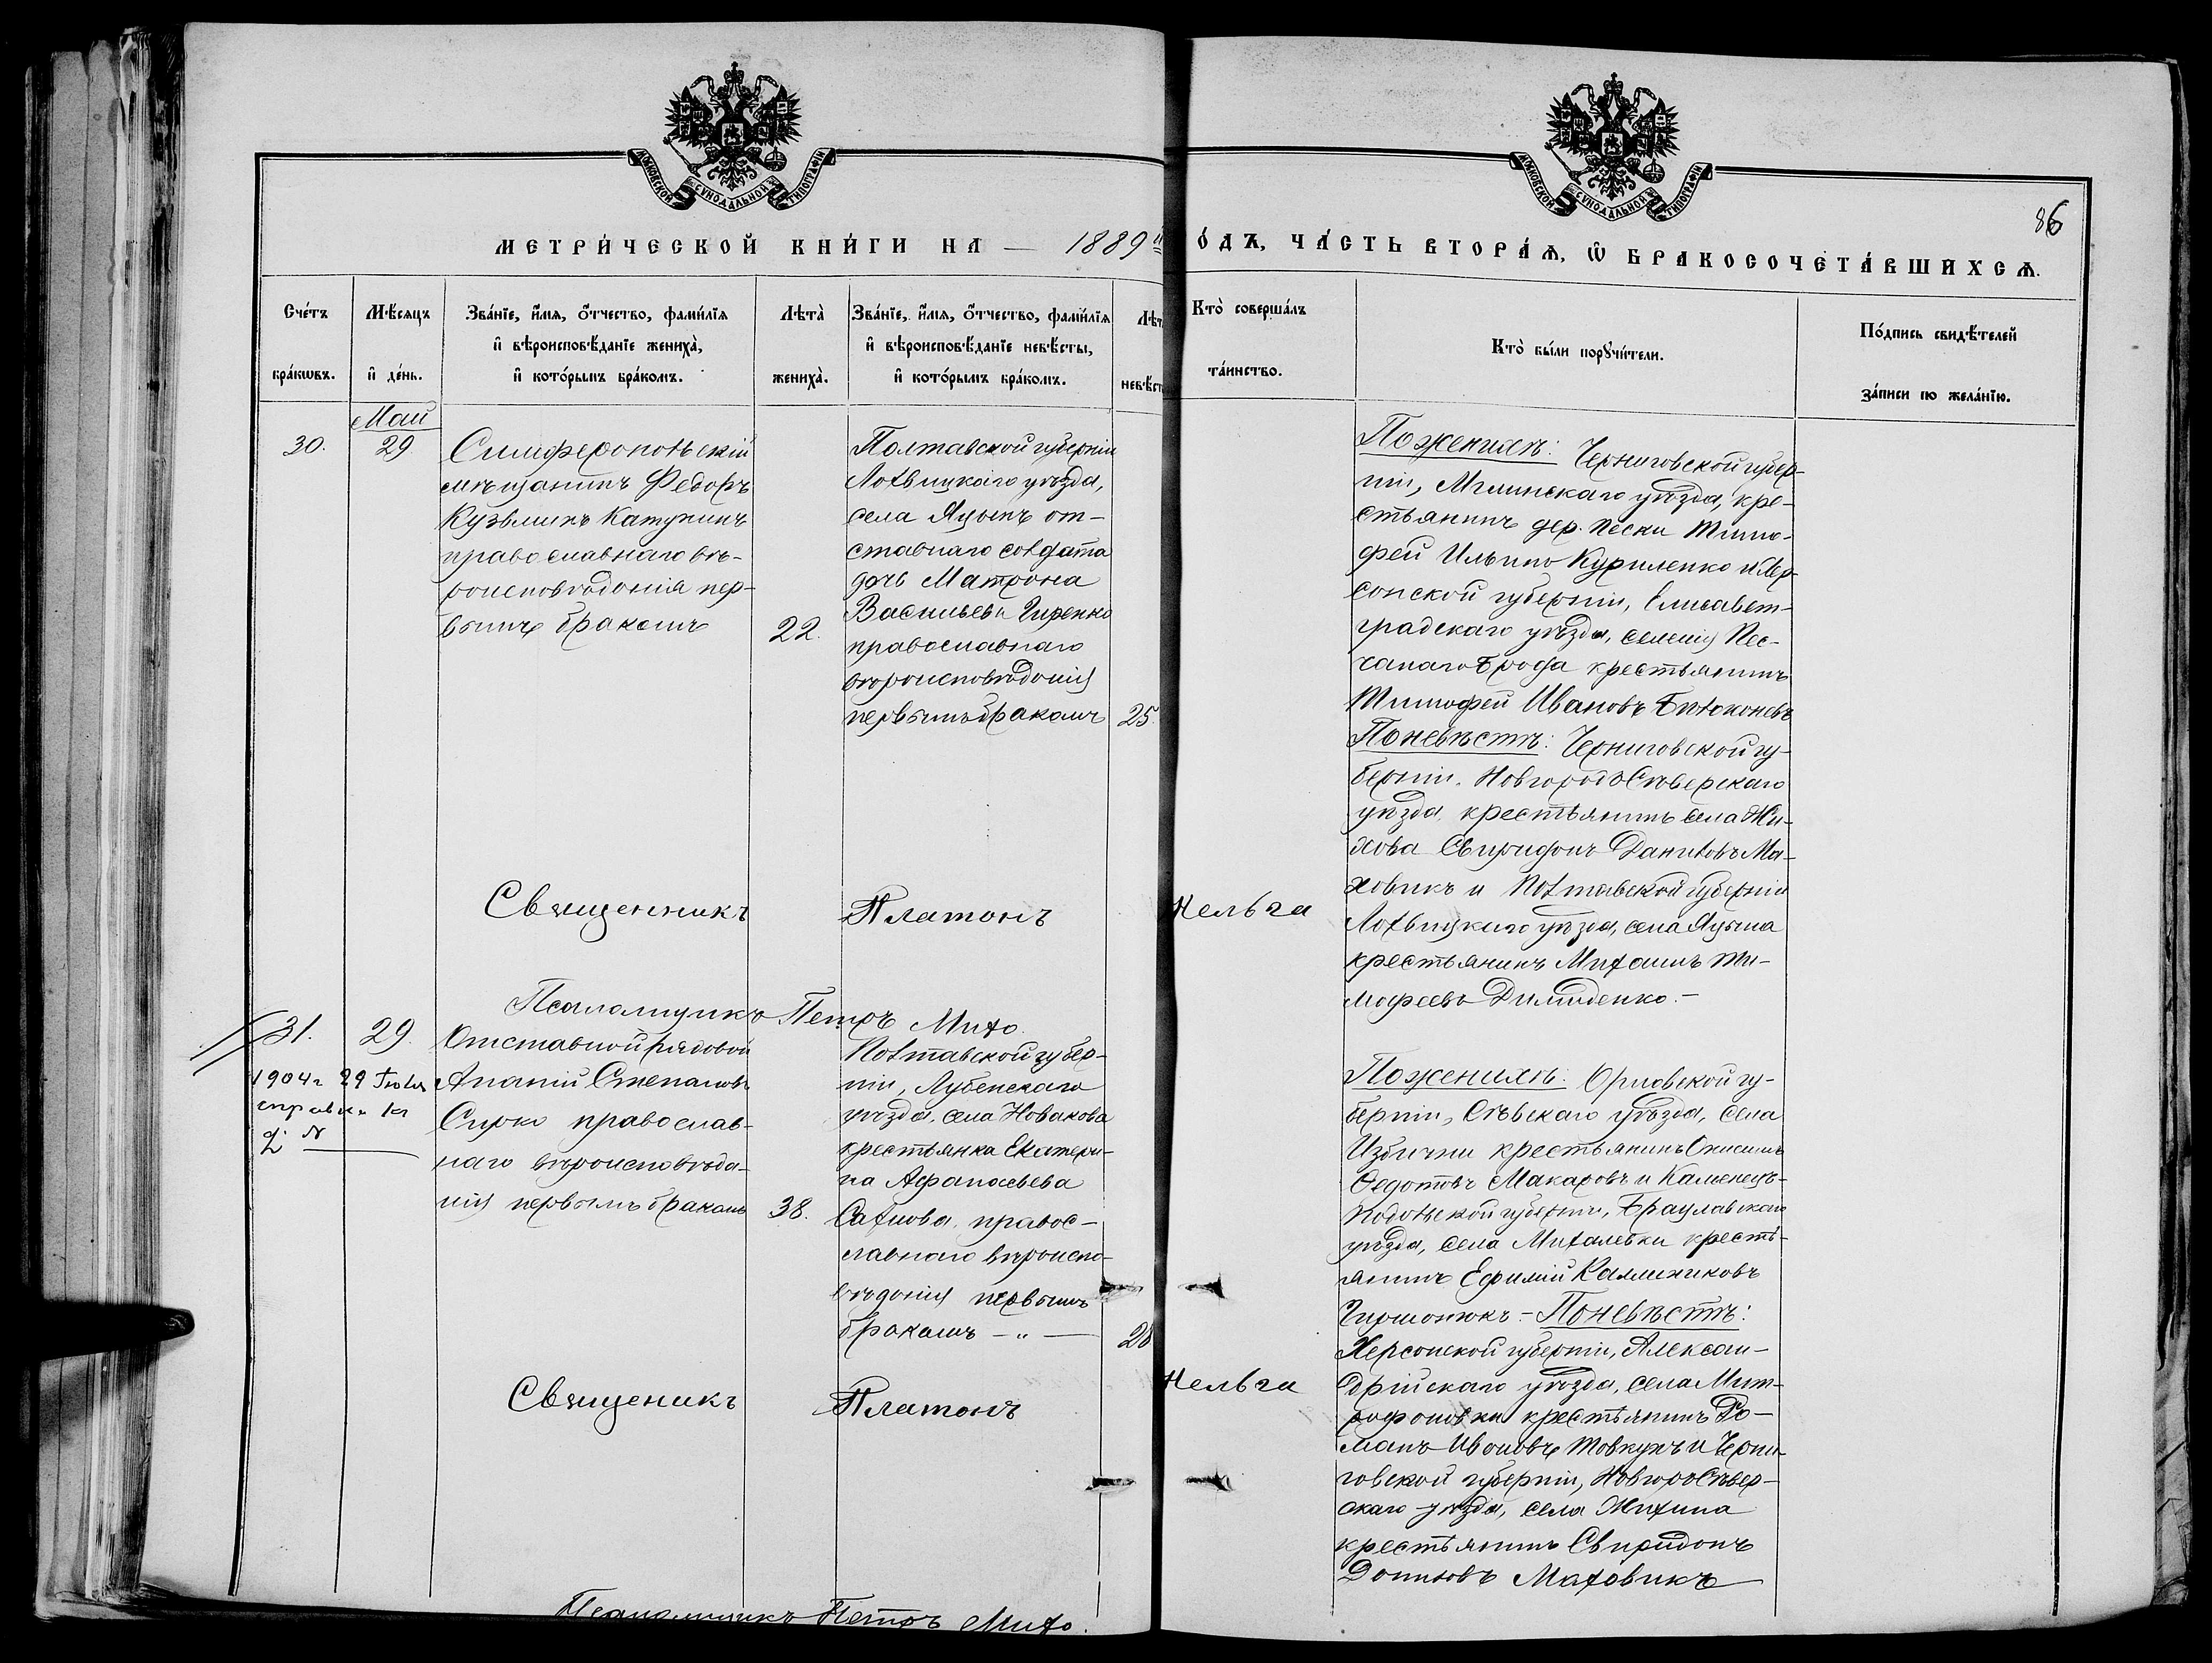 МОСКОВСКОЙ СѴНОДАЛЬНОЙ ТИПОГРАФІИ
МОСКОВСКОЙ СѴНОДАЛЬНОЙ ТИПОГРАФІИ
86
МЕТРИ́ЧЕСКОЙ КНИ́ГИ НА — 1889
О́ДЪ, ЧА́СТЬ ВТОРА́Ѧ, Ѡ҆ БРАКОСОЧЕТА́ВШИХСѦ.
Сче́тъ
бра́кѡвъ.
Мѣ́сяцъ
и҆ де́нь.
Зва́нїе, и҆́мѧ, о҆́тчество, фамѝлїѧ
и҆ вѣроисповѣ́данїе жениха̀,
и҆ кото́рымъ бра́комъ.
Лѣта̀
жениха̀.
Зва́нїе, и҆́мѧ, о҆́тчество, фамѝлїѧ
и҆ вѣроисповѣ́данїе невѣ́сты,
и҆ кото́рымъ бра́комъ.
Кто̀ соверша́лъ
та́инство.
Кто̀ бы́ли порꙋчи́тели.
По́дпись свидѣ́телей
за́писи по жела́нїю.
Май
30.
29
Симферопольскій
мѣщанинъ Федоръ
Кузьминъ Катунинъ
православнаго вѣ-
роисповѣданія пер-
вымъ бракомъ
22.
Полтавской губерніи
Лохвицкаго уѣзда,
села Яцынъ от-
ставнаго солдата
дочь Матрона
Васильева Гиренко
православнаго
вѣроисповѣданія
первымъ бракомъ
25.
Священникъ Платонъ Нельга
Псаломщикъ Петръ Михо.
По женихѣ: Черниговской губер-
ніи, Мглинскаго уѣзда, кре-
стьянинъ дер. Пески Тимо-
фей Ильинъ Куриленко и Хер-
сонской губерніи, Елисавет-
градскаго уѣзда, селенія Пес-
чанаго Брода крестьянинъ
Тимофей Ивановъ
По невѣстѣ: Черниговской гу-
берніи, Новгородъ Сѣверскаго
уѣзда, крестьянинъ села Жи-
хова Свиридонъ Даниловъ Ма-
ховикъ и Полтавской губерніи
Лохвицкаго уѣзда, села Яцына
крестьянинъ Михаилъ Ти-
мофеевъ Димиденко.–
31.
29.
1904 г 29 Іюля
справка
Отставной рядовой
Ананій Степановъ
Сирко православ-
наго вѣроисповѣда-
нія первымъ бракомъ
38.
Полтавской губер-
ніи, Лубенскаго
уѣзда, села Новакова
крестьянка Екатери-
на Афанасьева
Сахнова, правос-
лавнаго вѣроиспо-
вѣданія первымъ
бракомъ – „ —
28
Священикъ Платонъ Нельга
По женихѣ: Орловской гу-
берніи, Сѣвскаго уѣзда, села
Избични крестьянинъ Онисимъ
Федотовъ Макаровъ и Каменецъ-
Подольской губерніи, Брацлавскаго
уѣзда, села Михалевки кресть-
янинъ Ефимій Калиниковъ
Гиршонюкъ.– По невѣстѣ:
Херсонской губерніи, Алексан-
дрійскаго уѣзда, села Мит-
рофановки крестьянинъ Ро-
манъ Ивановъ Товкунъ и Черни-
говской губерніи, Новгород Сѣвер-
скаго уѣзда, села Жихина
крестьянинъ Свиридонъ
Даниловъ Маховикъ
Псаломщикъ Петръ Михо.